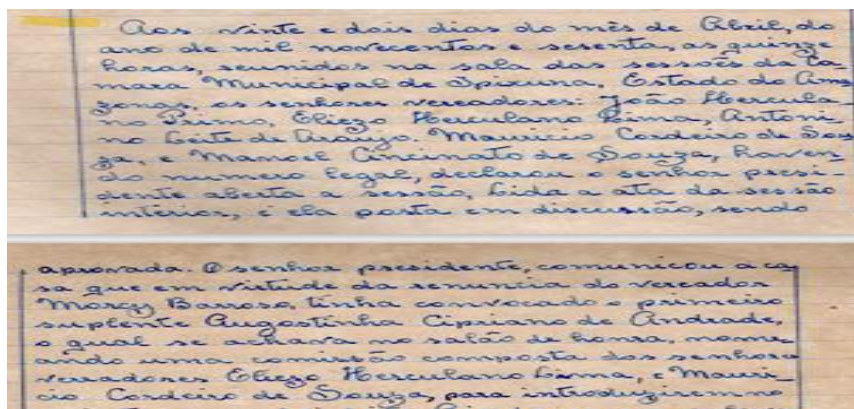 Aos vinte e dois dias do mês de Abril, do
ano de mil novecentos e sesenta, as quinze
horas, reunidos na sala das sessões da Ca_
mara Municipal de Ipixuna, Estado do Ama
zonas, os senhores vereadores: João Hercula_
no Primo, Eliezo Herculano Lima, Antoni_
no Leite de Araujo. Mauricio Cordeiro de Sou
za, e Manoel Cincinato de Souza, haven
do numero legal, declarou o senhor presi_
dente aberta a sessão, Lida a ata da sessão
interior, é ela posta em discussão, sendo
aprovada. O senhor presidente, comunicou a ca_
sa que em virtude da renuncia do vereador
Barroso, tinha convocado o primeiro
suplente Augostinha Cipriano de Andrade,
o qual se achava no salão de honra, nome_
ando uma comissão composta dos senhores
vereadores Eliezo Herculano Lima, e Mauri_
cio Cordeiro de Souza, para introduzirem no